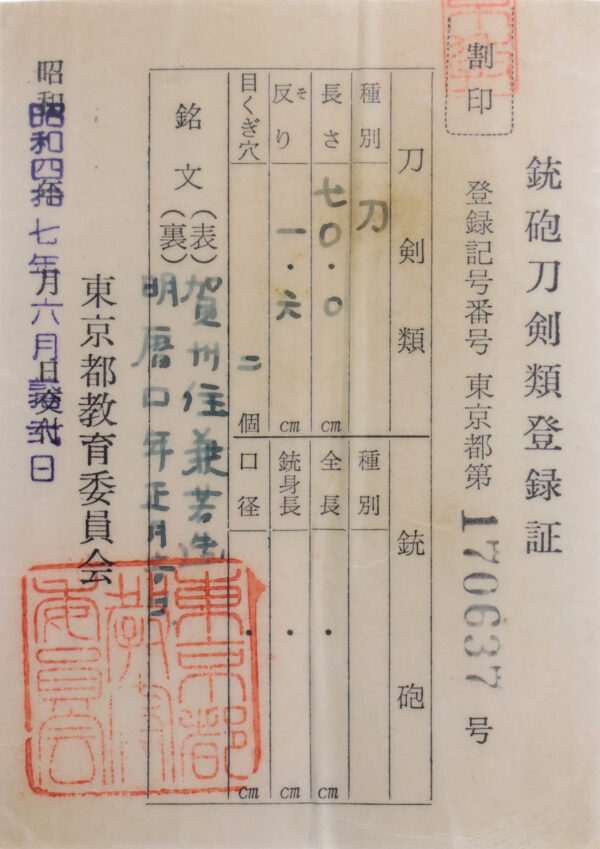 銃砲刀剣類登録証
割印
登録記号番号 東京都第170637号
刀剣類
銃砲
種別 刀
種別
長さ 七〇・〇 cm
全長 ・ cm
反り そ 一・六 cm
銃身長 ・ cm
目くぎ穴 二 個
口径 ・ cm
銘文
(表) 賀州住兼若造
(裏) 明暦口年正月吉日
東京都教育委員会
昭和 年 月 日
昭和四拾七年六月 日
東京都教育委員会